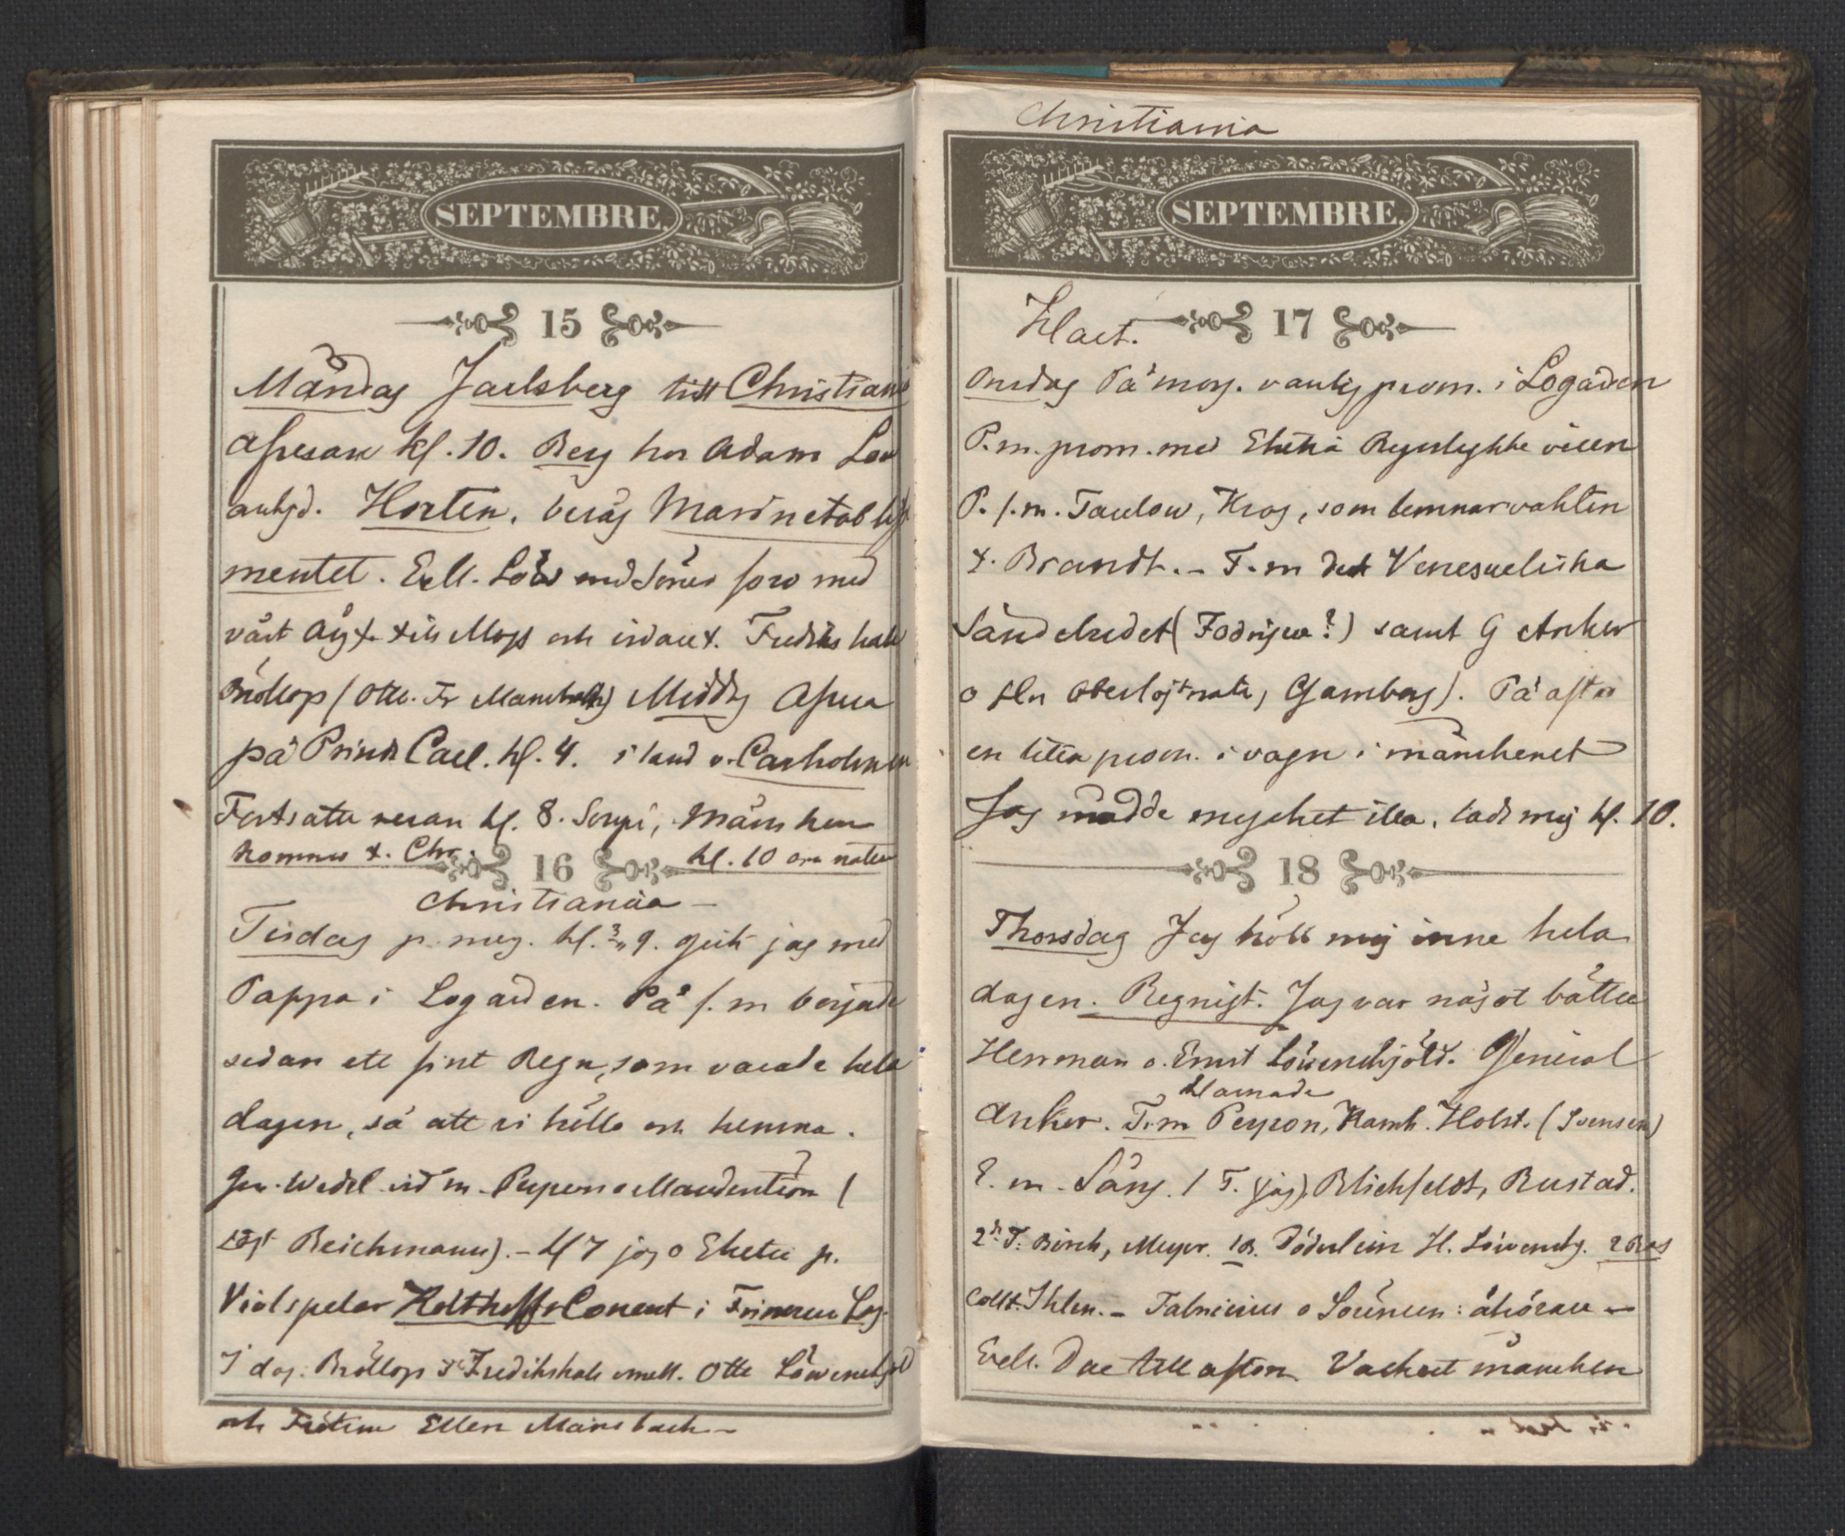 SEPTEMBRE.
15
Måndag Jarlsberg till Christiania
afresan kl. 10. Berg hos Adam Løv
antgd. Horten. besåg Marinetablis
mentet. Exll. Löv med Söner foro med
vårt till Moss och Fredrikshald
Bröllop (Otto. Fr Mansbach) Midd
på Prins Carl. kl. 4. i land v. Carholmen
Fortsatte resan kl. 8. Soupé, Månsken
kommo t. Chr. kl. 10 om natten
16
Christiania -
Tisdag p. mrg. kl. 9. gick jag med
Pappa i Logården. På f.m började
sedan ett fint Regn, som varade hela
dagen, så att vi höllo oss hemma.
Gen. Wedel vid m. Peyron o Mandenström (
Reichmann). - kl 7 jag o Eketre p.
Violspelar Holthoffs Concert i Frimurau Log.
I dag: Bröllop Fredrikshald emell. Otto Löwenskjold
och Fröken Ellen Mansbach -
Christiania
SEPTEMBRE.
Klart. 17
Onsdag På morg. vanlig prom. i Logården
P.m. prom. med Eketrä
P. f.m. Taulow, Krog, som lemnar vakten
t. Brandt. - F.m det Venesueliska
Sändebudet ( ?) samt G Anker
o Hr Oberslöjtnate, Gamborg). På afton
en liten prom. i vagn i månskenet
Jag mådde mycket illa, lade mig kl. 10.
18
Thorsdag Jag höll mig inne hela
dagen. Regnigt. Jag var något bättre
Herrman o. Ernst Lövenskjöld. General
klarnade
Anker. F.m Peyron, Kamh. Holst. (Svensen)
E. m. Sång. 1 T. (jag), Blichfeldt, Rustad.
2n T: Birch, Meyer. 1B. Döderlein H. Lövensk. 2 Bas
Ihlen. - Fabricius o Sörensen: åhörare -
Exell. Due till afton. Vackert månsken